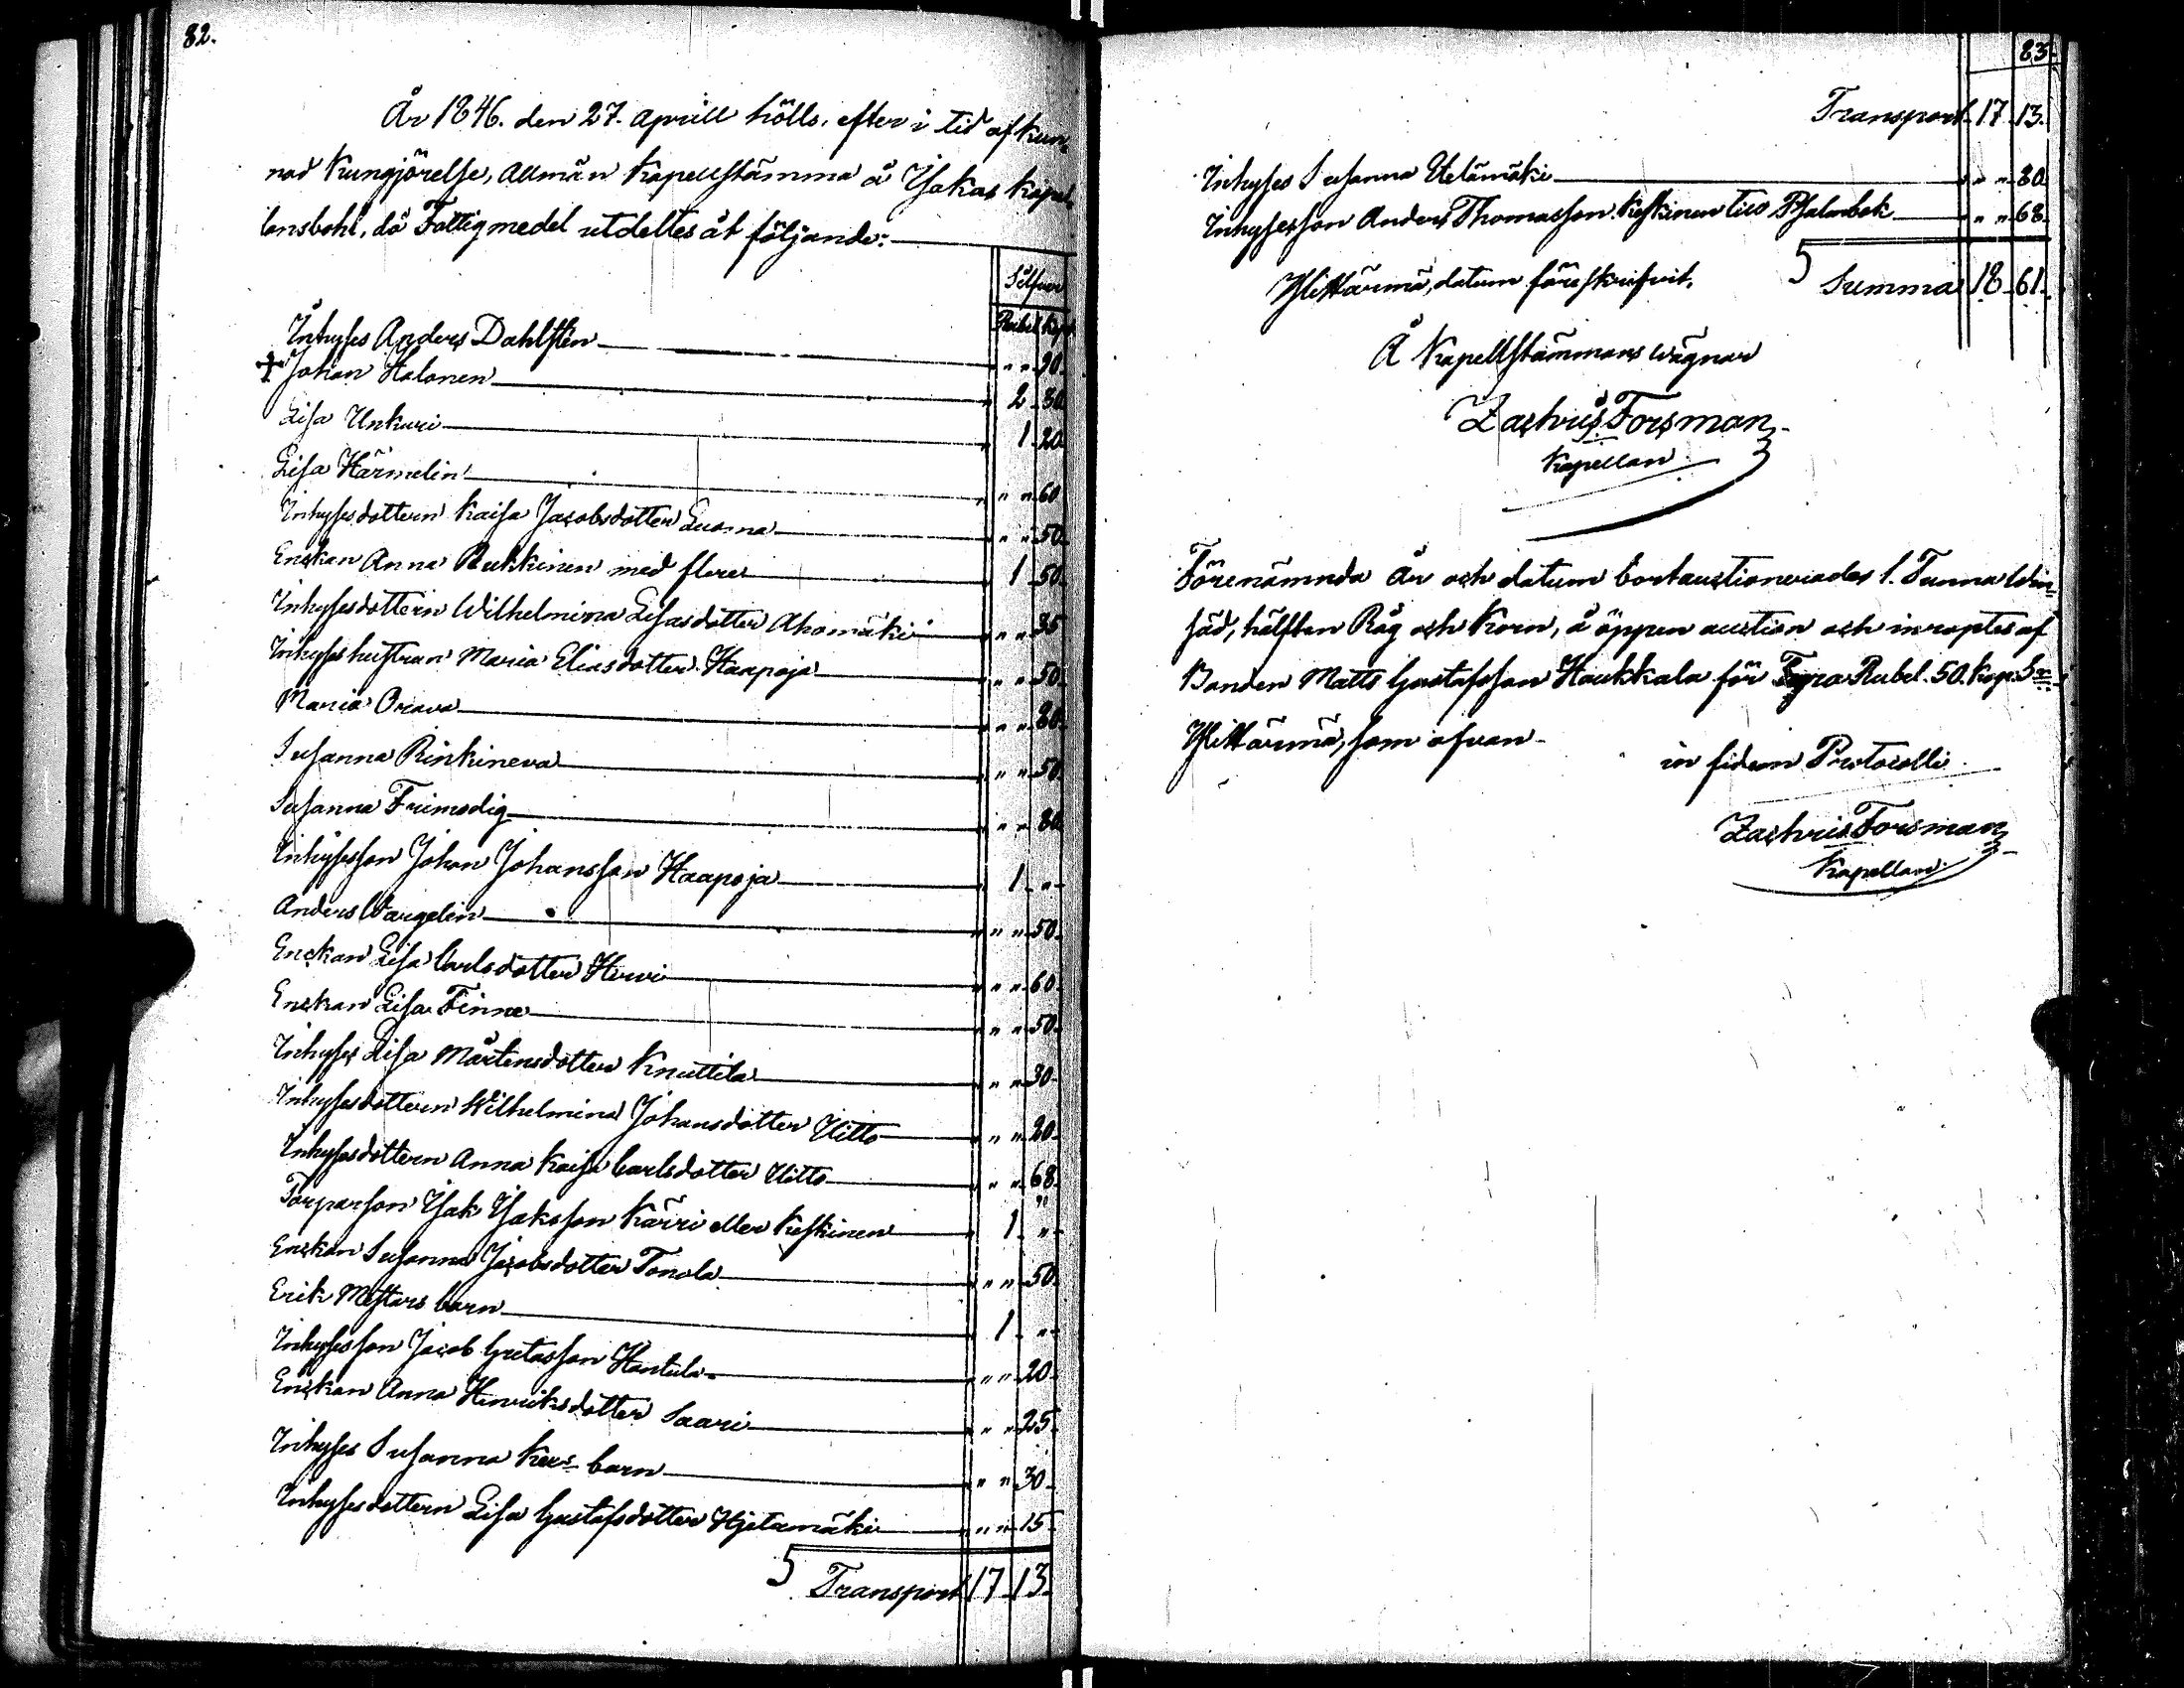 82.
År 1846. den 27. aprill hölls, efter i tid afkun-
nad Kungjörelse, Allmän Kapellstämma å Isakas Kapel-
lansbohl, då Fattigmedel utdeltes åt följande:
Silfver
Rubel Kop.
Inhyses Anders Dahlsten " " 90.
Johan Halonen 2 30
Lisa Unkuri 1 20
Lisa Härmelin " " 60
Inhysesdottern Kaisa Jacobsdotter Luoma " " 50.
Enckan Anna Rukkinen med flere 1 50.
Inhysesdottern Wilhelmina Lisasdotter Ahomäki " " 35
Inhyseshustrun Maria Eliasdotter Haapoja " " 50.
Maria Orava " " 80.
Susanna Rinkineva " " 50.
Susanna Frimodig " " 80
Inhysesson Johan Johansson Haapoja 1 "
Anders Wargelin " " 50.
Enckan Lisa Carlsdotter Hirvi " " 60.
Enckan Lisa Finne " " 50.
Inhyses Lisa Mårtensdotter Knuttila " " 30.
Inhysesdottern Wilhelmina Johansdotter Uitto " " 20.
Inhysesdottern Anna Kaisa Carlsdotter Uitto " " 68.
Torparson Isak Isaksson Kärri eller Keskinen 1 "
Enckan Susanna Jacobsdotter Tonola " " 50.
Erik Mestars barn 1 "
Inhysesson Jacob Gretasson Hantula " " 20.
Enckan Anna Henriksdotter Saari " " 25.
Inhyses Susanna barn " " 30.
Inhysesdottern Lisa Gustafsdotter Hjetamäki " " 15
Transport 17 13.
83.
Transport 17 13.
Inhyses Susanna Uelämäki " " 80.
Inhysesson Anders Thomasson Keskinen till Psalmbok " " 68.
Summa 18 61.
Ylihärmä, datum föreskrifvit.
Å Kapellstämmans wägnar
Zachris Forsman
Kapellan.
Förenämnda År och datum bortauctionerades 1. Tunna
säd, hälften Råg och Korn, å öppen auction och inroptes af
Bonden Matts Gustafsson Haukkala för Fyra Rubel 50. Kop. Sr.
Ylihärmä, som ofvan.
in fidem Protocolli
Zachris Forsman
Kapellan